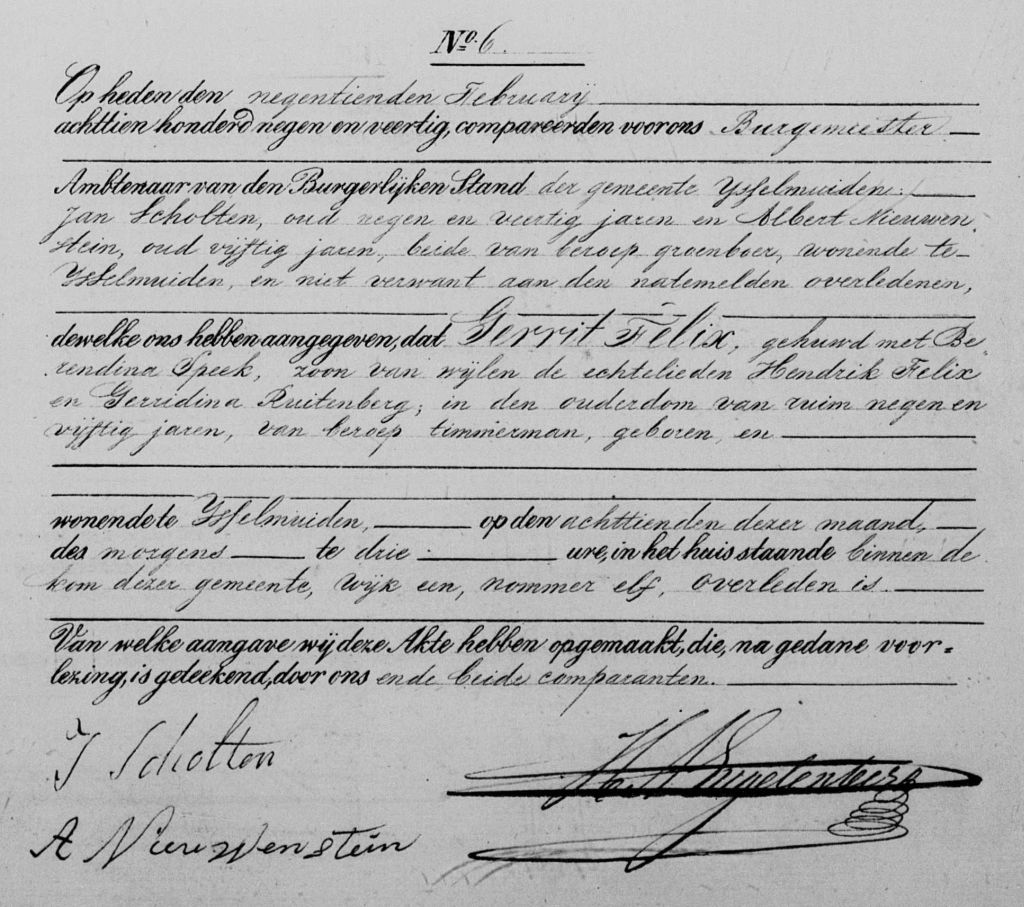 No. 6.
Op heden den negentienden February
achttien honderd negen en veertig, compareerden voor ons Burgemeester
Ambtenaar van den Burgerlijken Stand der gemeente Ysselmuiden:
Jan Scholten, oud negen en veertig jaren en Albert Nieuwen
stein, oud vijftig jaren, beide van beroep groenboer, wonende te
Ysselmuiden, en niet verwant aan den natemelden overledenen,
dewelke ons hebben aangegeven, dat Gerrit Felix, gehuwd met Be
rendina Speek, zoon van wijlen de echtelieden Hendrik Felix
en Gerridina Ruitenberg; in den ouderdom van ruim negen en
vijftig jaren, van beroep timmerman, geboren, en
wonende te Ysselmuiden, op den achttienden dezer maand,
des morgens te drie ure, in het huis staande binnen de
kom dezer gemeente, wijk een, nommer elf, overleden is.
Van welke aangave wij deze Akte hebben opgemaakt, die, na gedane voor=
lezing, is geteekend, door ons en de beide comparanten.
J Scholten
A Nieuwenstein